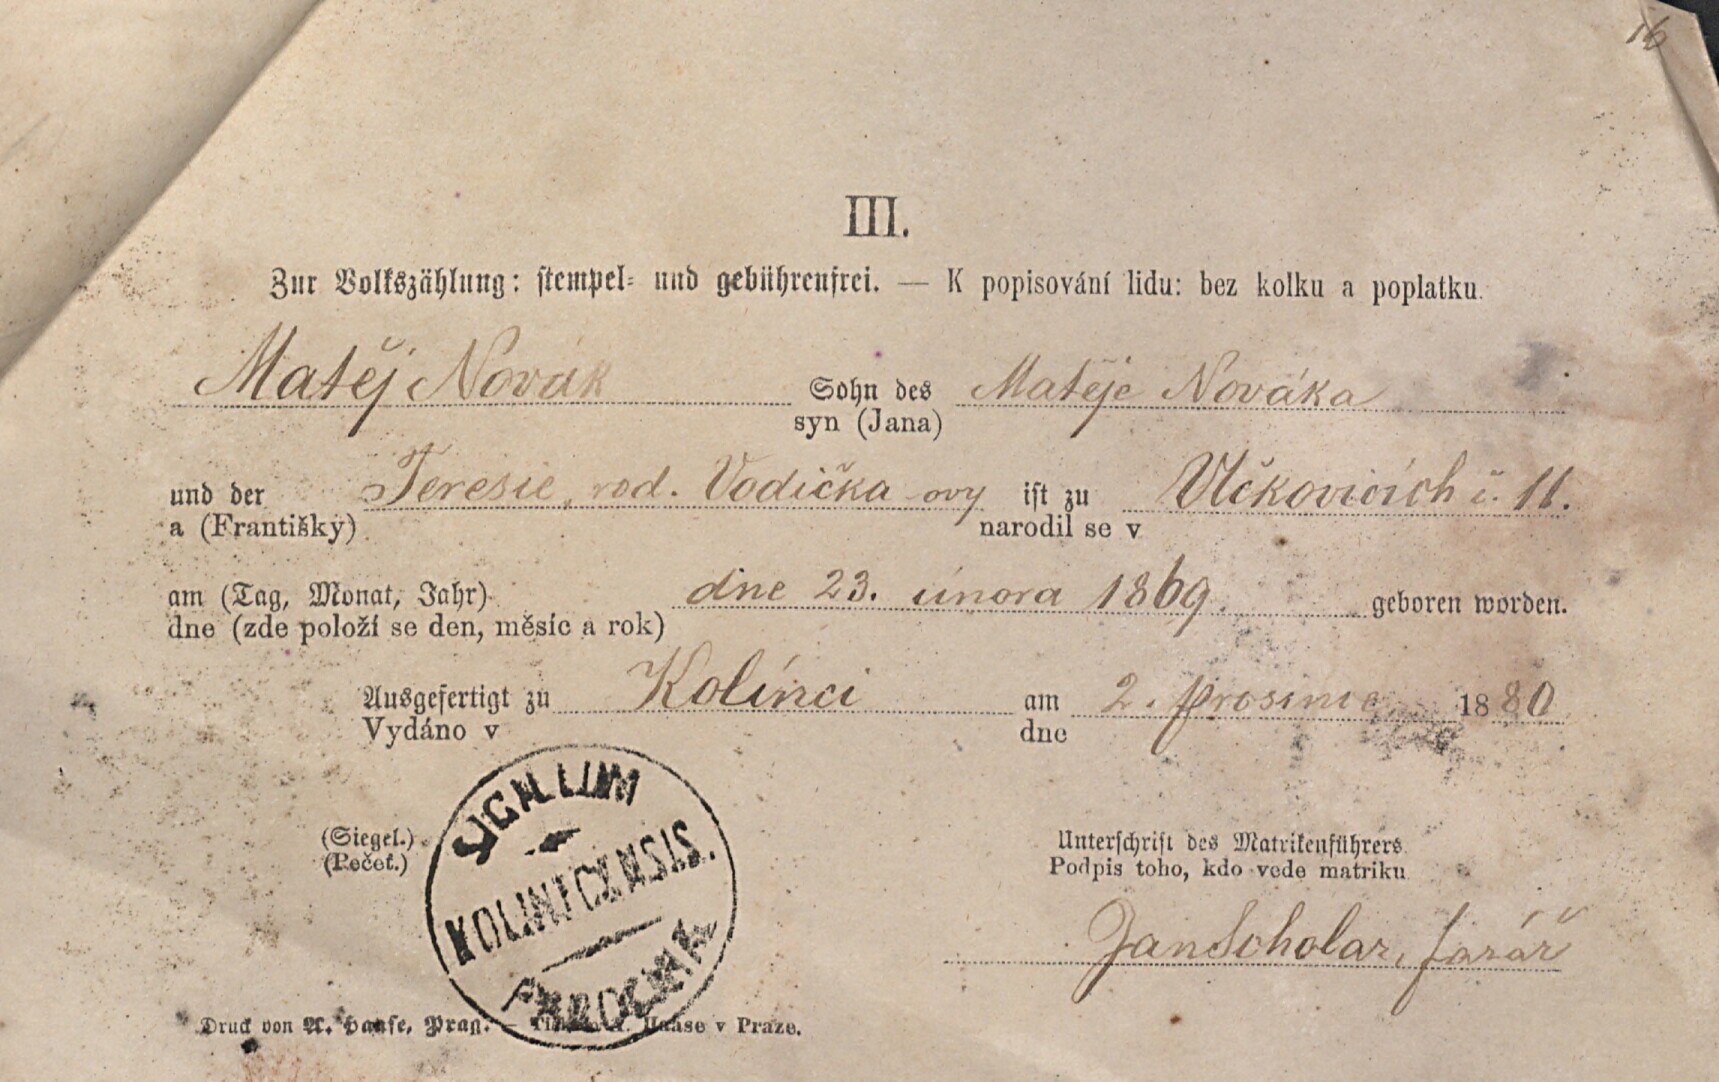 16
III.
Zur Volkszählung: stempel- und gebührenfrei. — K popisování lidu: bez kolku a poplatku.
Matěj Novák Sohn des Matěje Nováka
syn (Jana)
und der Teresie, rod. Vodička ovy ist zu Vlčkovicích č. 11.
a (Františky) narodil se v
am (Tag, Monat, Jahr) dne 23. února 1869. geboren worden.
dne (zde položí se den, měsíc a rok)
Ausgefertigt zu Kolínci am 2. prosince 1880
Vydáno v dne
SIGILLUM
KOLINICENSIS.
PAROCHIA
(Siegel.) Unterschrift des Matrikenführers
(Pečeť.) Podpis toho, kdo vede matriku
Jan Scholar, farář
Druck von A. Haase, Prag. — Tiskem A. Haase v Praze.